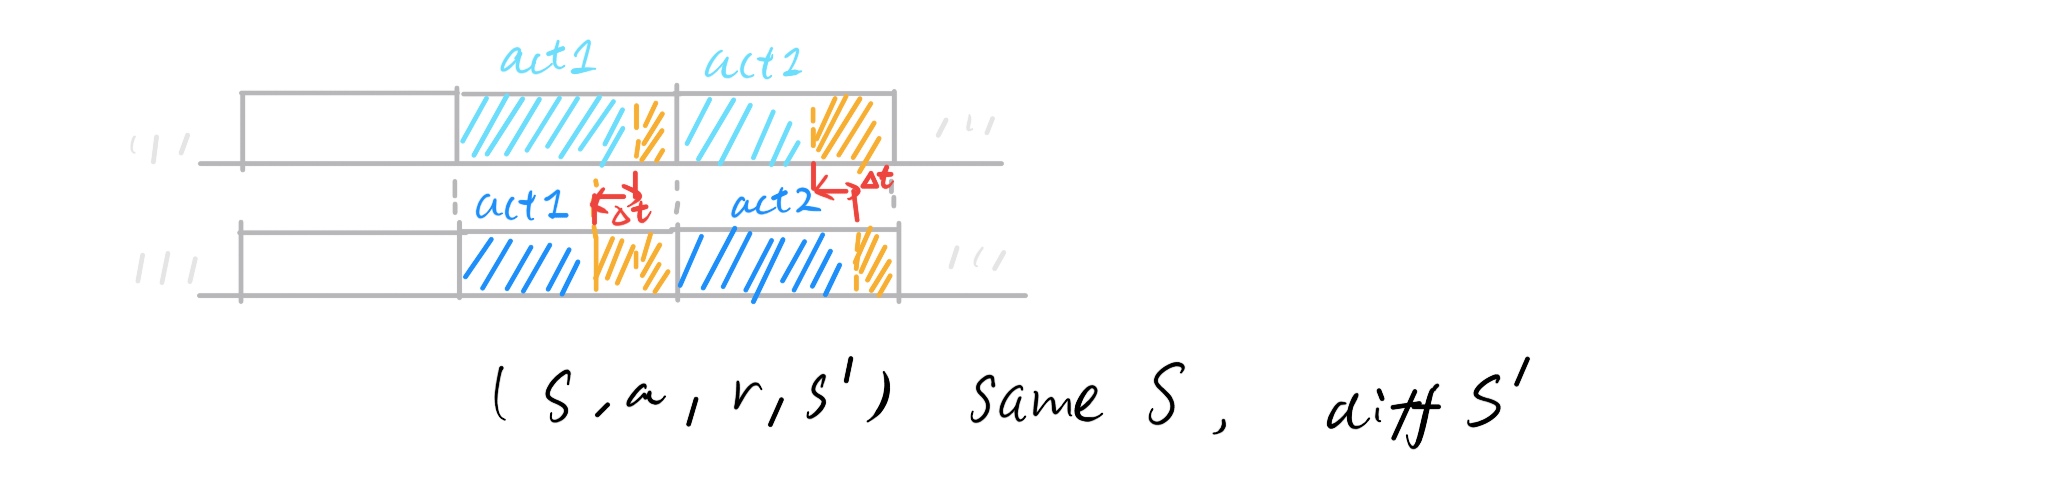 act1 act2
Δt
act1 Δt act2
(s, a, r, s') same S, diff S'